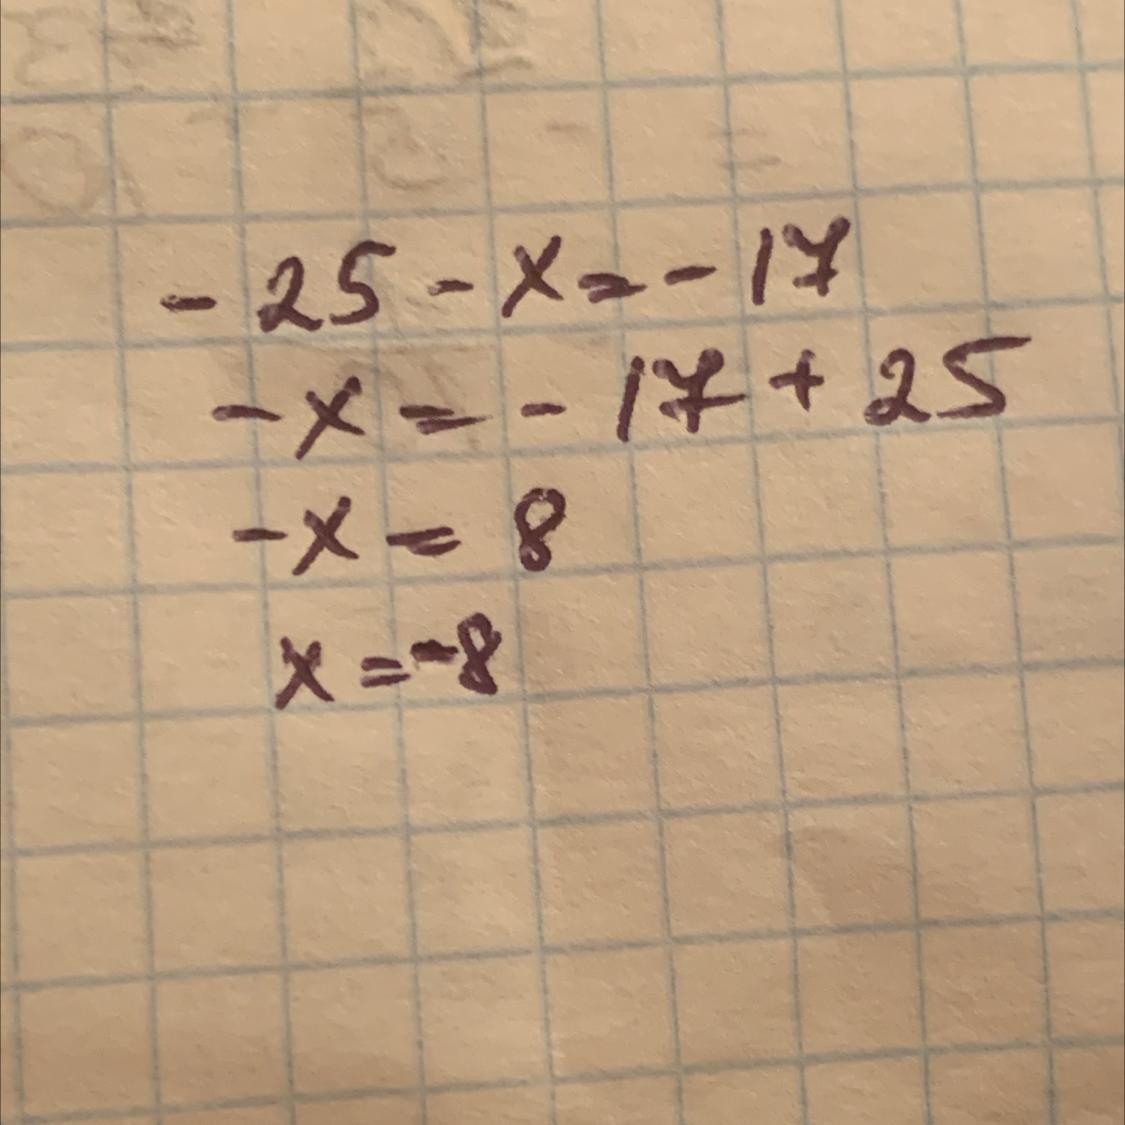 - 25 - x = - 17
- x = - 17 + 25
- x = 8
x = -8